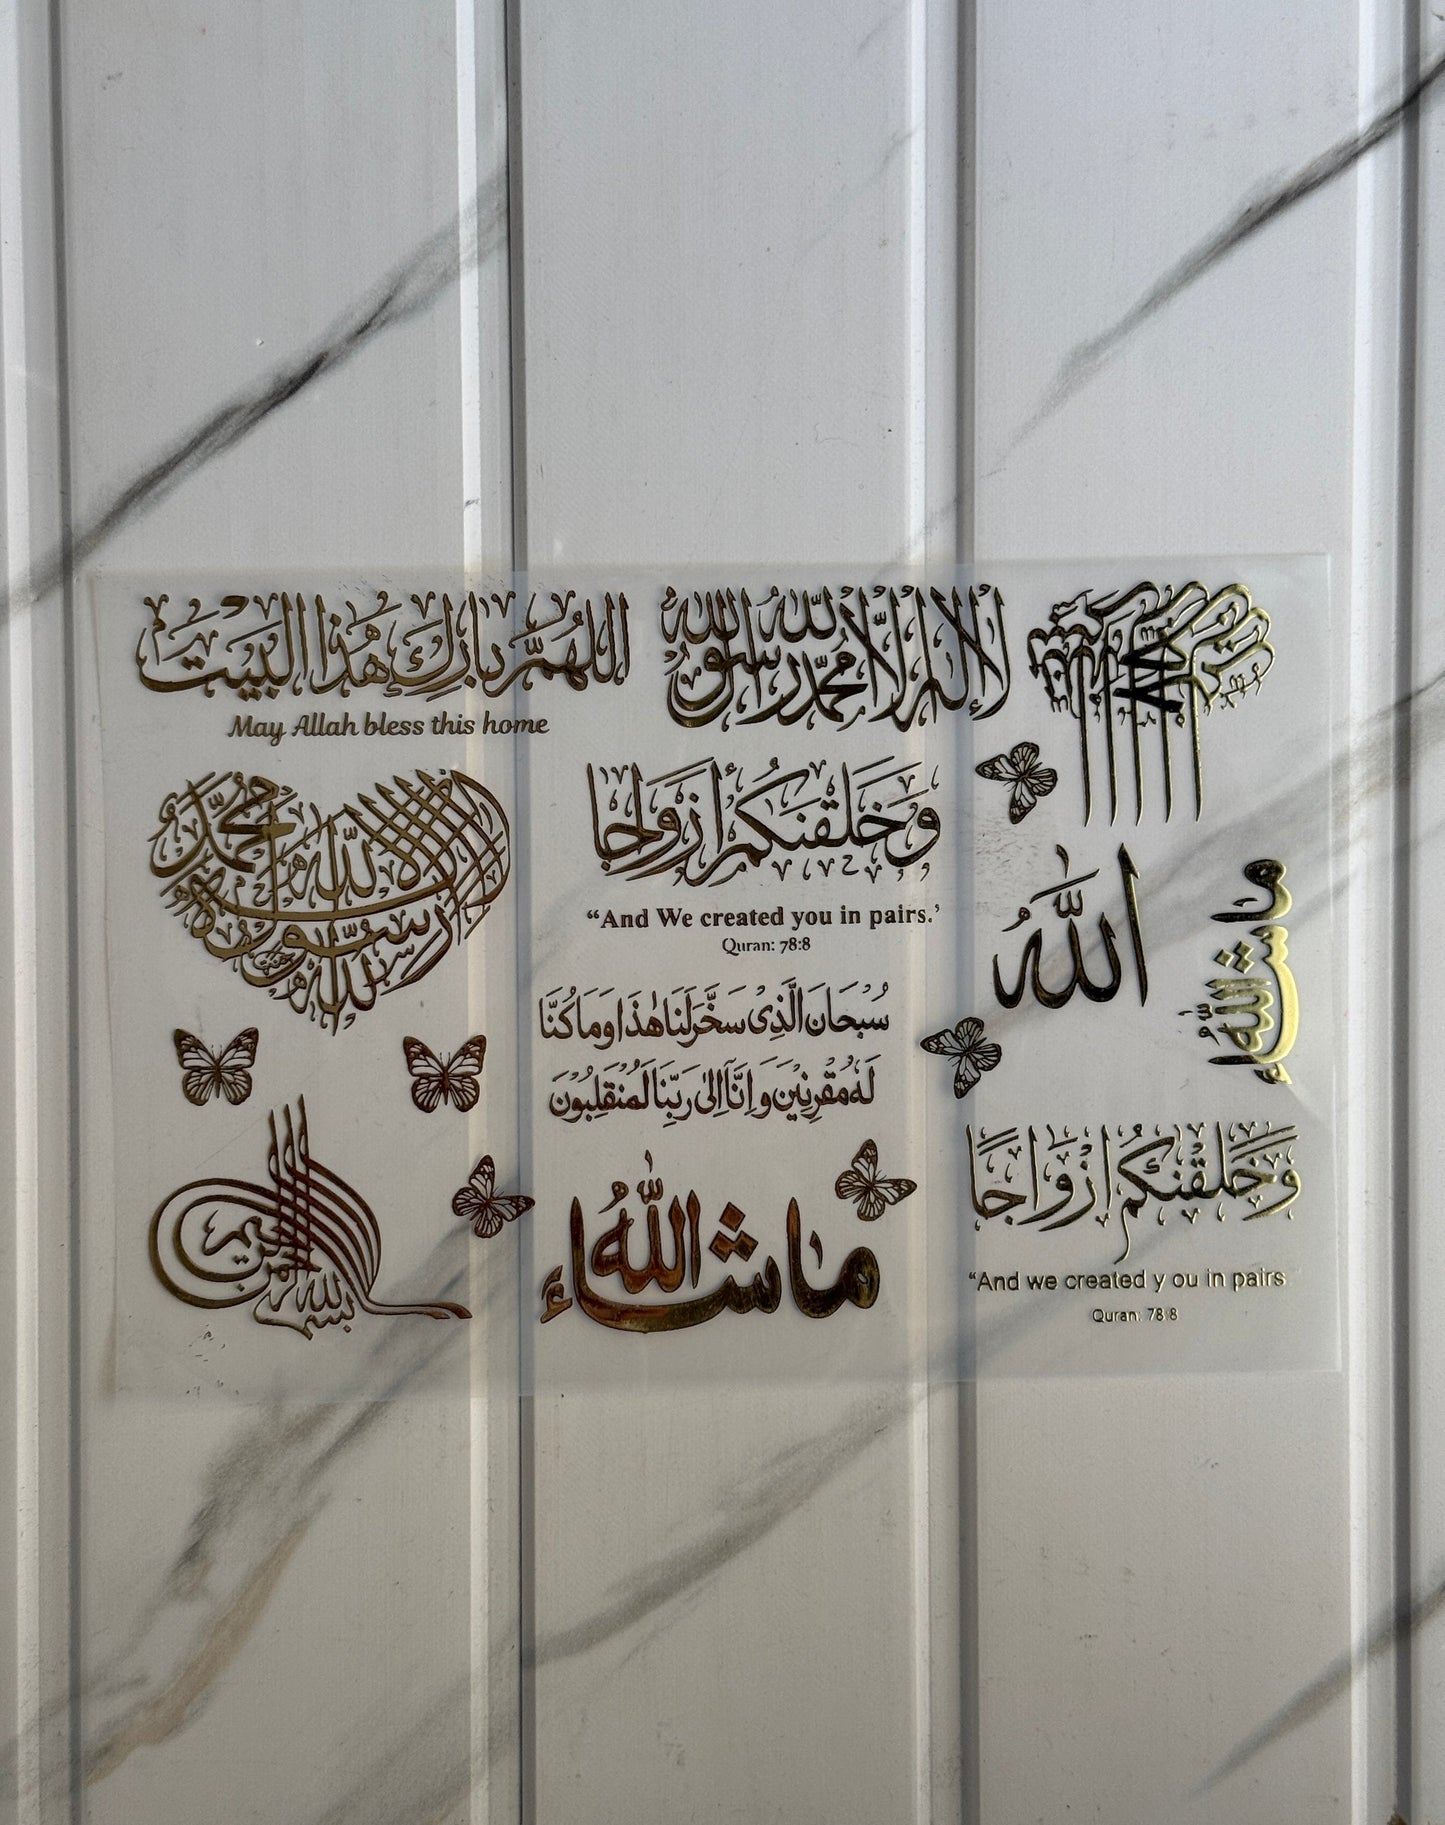 اللهُمَّ بَارِك هٰذَا البَيْت
May Allah bless this home
لا إله إلا الله محمد رسول الله
محمد
لا إله إلا الله
رسول الله
وَخَلَقْنَكُمْ أَزْوَاجًا
“And We created you in pairs.’
Quran: 78:8
الله
ما شاء الله
سُبْحَانَ الَّذِىْ سَخَّرَلَنَا هٰذَا وَمَا كُنَّا
لَهٗ مُقْرِنِيْنَ وَ اِنَّآ اِلٰى رَبِّنَا لَمُنْقَلِبُوْنَ
بسم الله الرحمن الرحيم
ما شاء الله
وَخَلَقْنكُمْ أزْوَاجًا
“And we created y ou in pairs
Quran: 78:8